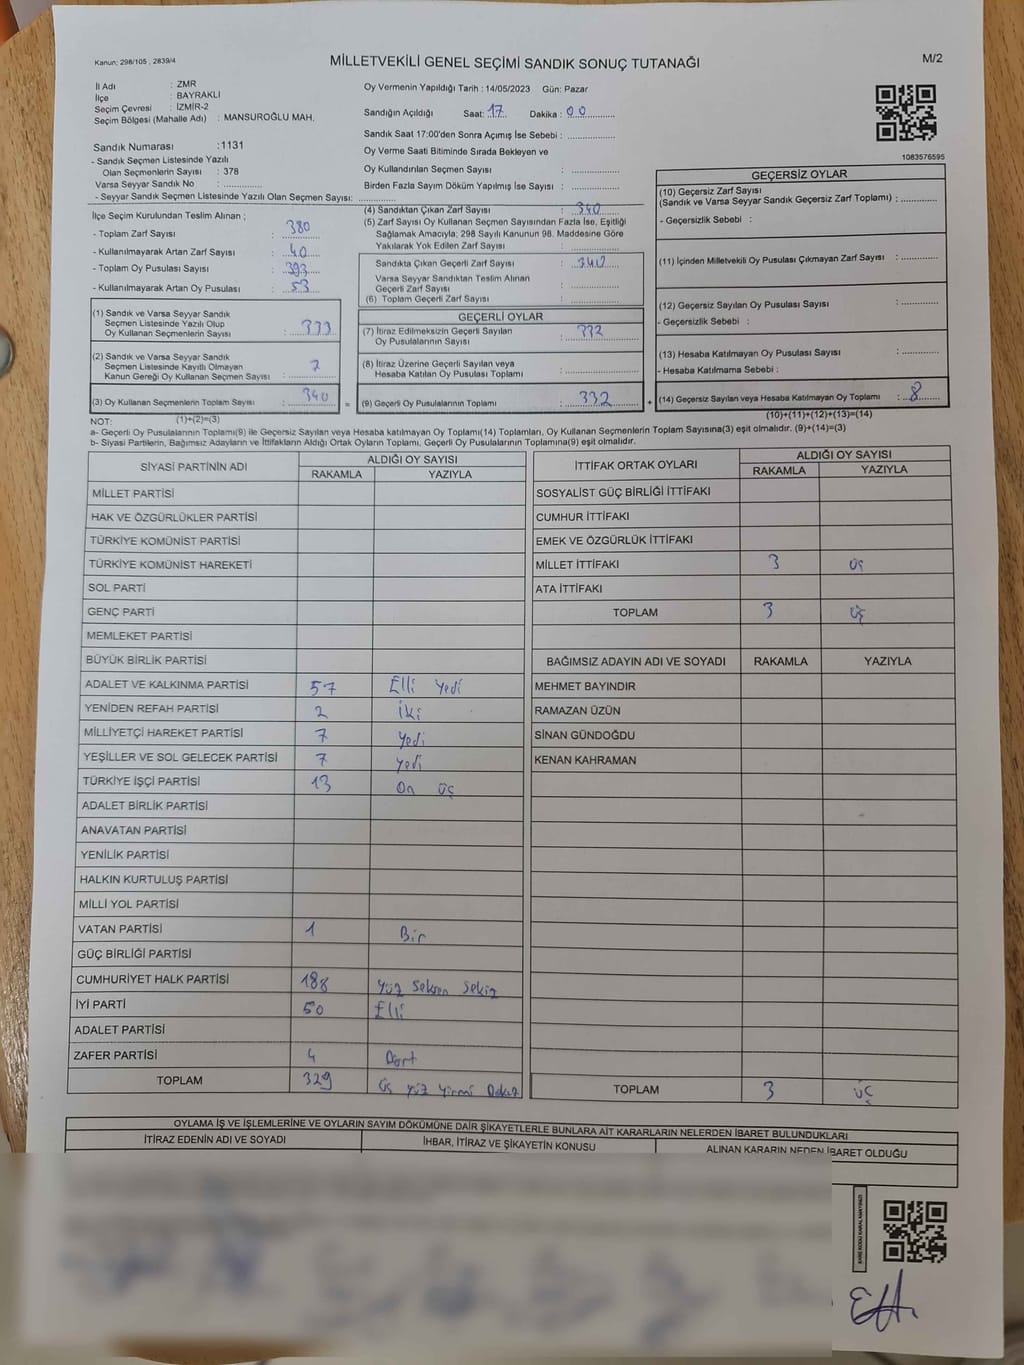 Kanun: 298/105 , 2839/4
MİLLETVEKİLİ GENEL SEÇİMİ SANDIK SONUÇ TUTANAĞI
M/2
İl Adı : ZMR
İlçe : BAYRAKLI
Seçim Çevresi : İZMİR-2
Seçim Bölgesi (Mahalle Adı) : MANSUROĞLU MAH.
Sandık Numarası :1131
- Sandık Seçmen Listesinde Yazılı
Olan Seçmenlerin Sayısı : 378
Varsa Seyyar Sandık No : ..............
- Seyyar Sandık Seçmen Listesinde Yazılı Olan Seçmen Sayısı: ..............
Oy Vermenin Yapıldığı Tarih : 14/05/2023 Gün: Pazar
Sandığın Açıldığı Saat: 17 Dakika : 00
Sandık Saat 17:00'den Sonra Açımış İse Sebebi : ..............
Oy Verme Saati Bitiminde Sırada Bekleyen ve
Oy Kullandırılan Seçmen Sayısı : ..............
Birden Fazla Sayım Döküm Yapılmış İse Sayısı : ..............
1083576595
İlçe Seçim Kurulundan Teslim Alınan ;
- Toplam Zarf Sayısı : 380
- Kullanılmayarak Artan Zarf Sayısı : 40
- Toplam Oy Pusulası Sayısı : 393
- Kullanılmayarak Artan Oy Pusulası : 53
(1) Sandık ve Varsa Seyyar Sandık
Seçmen Listesinde Yazılı Olup
Oy Kullanan Seçmenlerin Sayısı : 333
(2) Sandık ve Varsa Seyyar Sandık
Seçmen Listesinde Kayıtlı Olmayan
Kanun Gereği Oy Kullanan Seçmen Sayısı : 7
(3) Oy Kullanan Seçmenlerin Toplam Sayısı : 340
(4) Sandıktan Çıkan Zarf Sayısı : 340
(5) Zarf Sayısı Oy Kullanan Seçmen Sayısından Fazla İse, Eşitliği
Sağlamak Amacıyla; 298 Sayılı Kanunun 98. Maddesine Göre
Yakılarak Yok Edilen Zarf Sayısı : ..............
Sandıkta Çıkan Geçerli Zarf Sayısı : 340
Varsa Seyyar Sandıktan Teslim Alınan
Geçerli Zarf Sayısı : ..............
(6) Toplam Geçerli Zarf Sayısı : ..............
GEÇERLİ OYLAR
(7) İtiraz Edilmeksizin Geçerli Sayılan
Oy Pusulalarının Sayısı : 332
(8) İtiraz Üzerine Geçerli Sayılan veya
Hesaba Katılan Oy Pusulası Toplamı : ..............
= (9) Geçerli Oy Pusulalarının Toplamı : 332 +
GEÇERSİZ OYLAR
(10) Geçersiz Zarf Sayısı
(Sandık ve Varsa Seyyar Sandık Geçersiz Zarf Toplamı) : ..............
- Geçersizlik Sebebi :
(11) İçinden Milletvekili Oy Pusulası Çıkmayan Zarf Sayısı : ..............
(12) Geçersiz Sayılan Oy Pusulası Sayısı : ..............
- Geçersizlik Sebebi :
(13) Hesaba Katılmayan Oy Pusulası Sayısı : ..............
- Hesaba Katılmama Sebebi :
(14) Geçersiz Sayılan veya Hesaba Katılmayan Oy Toplamı : 8
NOT: (1)+(2)=(3)
(10)+(11)+(12)+(13)=(14)
a- Geçerli Oy Pusulalarının Toplamı(9) ile Geçersiz Sayılan veya Hesaba katılmayan Oy Toplamı(14) Toplamları, Oy Kullanan Seçmenlerin Toplam Sayısına(3) eşit olmalıdır. (9)+(14)=(3)
b- Siyasi Partilerin, Bağımsız Adayların ve İttifakların Aldığı Ortak Oyların Toplamı, Geçerli Oy Pusulalarının Toplamına(9) eşit olmalıdır.
SİYASİ PARTİNİN ADI ALDIĞI OY SAYISI
RAKAMLA YAZIYLA
MİLLET PARTİSİ
HAK VE ÖZGÜRLÜKLER PARTİSİ
TÜRKİYE KOMÜNİST PARTİSİ
TÜRKİYE KOMÜNİST HAREKETİ
SOL PARTİ
GENÇ PARTİ
MEMLEKET PARTİSİ
BÜYÜK BİRLİK PARTİSİ
ADALET VE KALKINMA PARTİSİ 57 Elli Yedi
YENİDEN REFAH PARTİSİ 2 İki
MİLLİYETÇİ HAREKET PARTİSİ 7 Yedi
YEŞİLLER VE SOL GELECEK PARTİSİ 7 Yedi
TÜRKİYE İŞÇİ PARTİSİ 13 On üç
ADALET BİRLİK PARTİSİ
ANAVATAN PARTİSİ
YENİLİK PARTİSİ
HALKIN KURTULUŞ PARTİSİ
MİLLİ YOL PARTİSİ
VATAN PARTİSİ 1 Bir
GÜÇ BİRLİĞİ PARTİSİ
CUMHURİYET HALK PARTİSİ 188 Yüz Seksen Sekiz
İYİ PARTİ 50 Elli
ADALET PARTİSİ
ZAFER PARTİSİ 4 Dört
TOPLAM 329 Üç Yüz Yirmi Dokuz
İTTİFAK ORTAK OYLARI ALDIĞI OY SAYISI
RAKAMLA YAZIYLA
SOSYALİST GÜÇ BİRLİĞİ İTTİFAKI
CUMHUR İTTİFAKI
EMEK VE ÖZGÜRLÜK İTTİFAKI
MİLLET İTTİFAKI 3 üç
ATA İTTİFAKI
TOPLAM 3 üç
BAĞIMSIZ ADAYIN ADI VE SOYADI RAKAMLA YAZIYLA
MEHMET BAYINDIR
RAMAZAN ÜZÜN
SİNAN GÜNDOĞDU
KENAN KAHRAMAN
TOPLAM 3 üç
OYLAMA İŞ VE İŞLEMLERİNE VE OYLARIN SAYIM DÖKÜMÜNE DAİR ŞİKAYETLERLE BUNLARA AİT KARARLARIN NELERDEN İBARET BULUNDUKLARI
İTİRAZ EDENİN ADI VE SOYADI
İHBAR, İTİRAZ VE ŞİKAYETİN KONUSU
ALINAN KARARIN NEDEN İBARET OLDUĞU